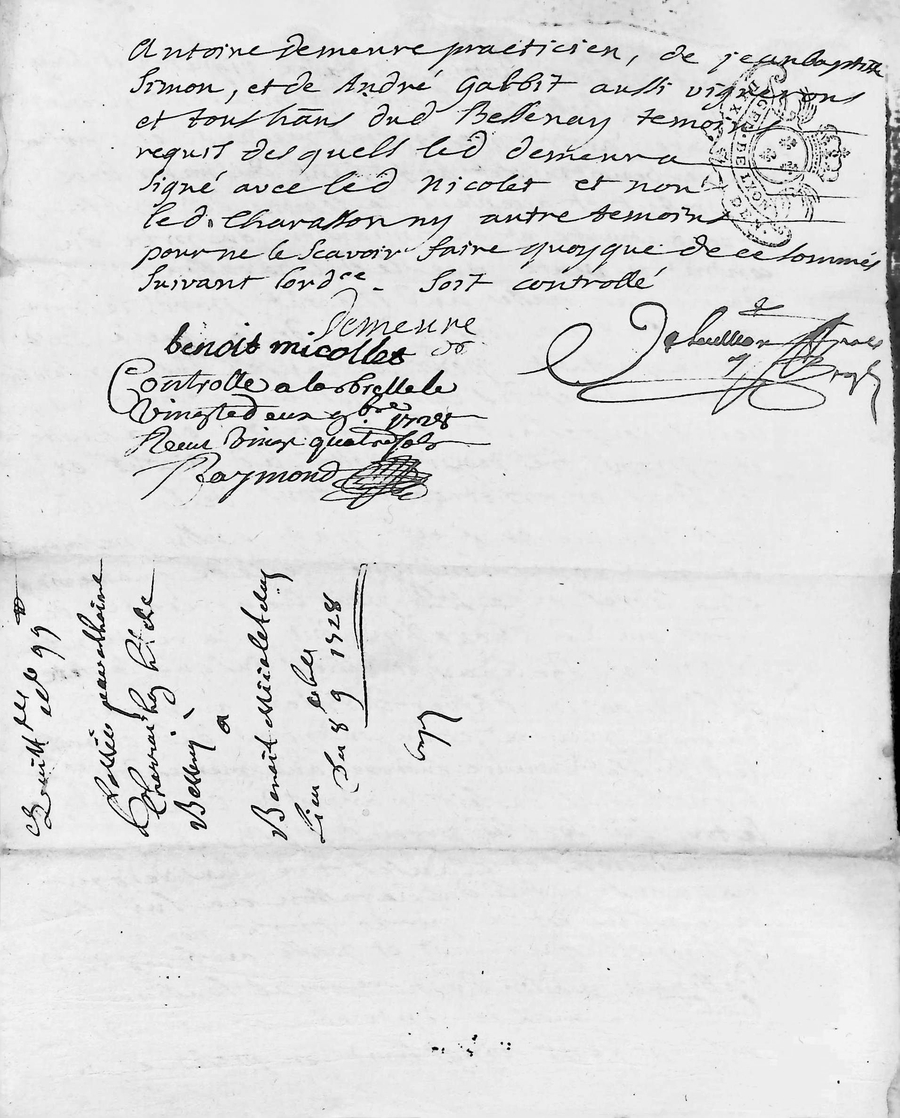 Antoine demeure practicien, de jeanbaptiste
Simon, et de André Gabbit aussi vignerons
et tous h̄ans dud Bessenay temoins
requis desquels led demeura
signé avec led Nicolet et non
led. Charassonny autre temoins
pour ne le scavoir faire quoyque de ce sommés
suivant lordce - soit controllé
Demeure
benoit micollet
Controlle a larbrelle le
Vingtdeux 9bre 1728
Receu vingt quatre sols
Raymond
passée par
h.t de
Bessenay
a
Benoit Nicolet dud
lieu
Du 8 9 1728